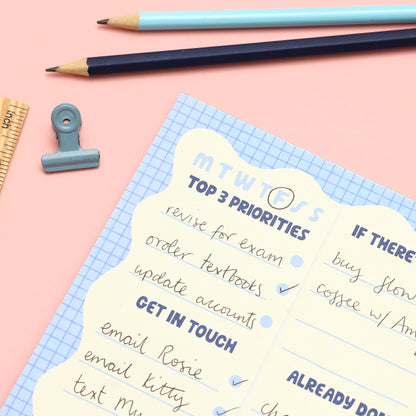 inch
M T W T F S S
TOP 3 PRIORITIES
revise for exam
order textbooks
update accounts
GET IN TOUCH
email Rosie
email Kitty
text
IF THERE'
buy
coffee w/
ALREADY